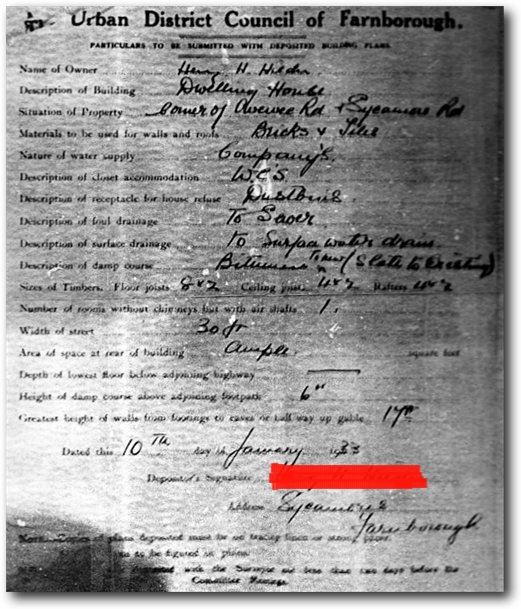 Urban District Council of Farnborough.
PARTICULARS TO BE SUBMITTED WITH DEPOSITED BUILDING PLANS.
Name of Owner Henry H.
Description of Building Dwelling House
Situation of Property Corner of Rd & Sycamore Rd
Materials to be used for walls and roofs Bricks & Tiles
Nature of water supply Company's.
Description of closet accommodation W.C'S
Description of receptacle for house refuse Dustbins
Description of foul drainage To
Description of surface drainage To water drain
Description of damp course (Slate to Existing)
Sizes of Timbers. Floor joists Ceiling joists 4x2 Rafters 4x2
Number of rooms without chimneys but with air shafts 1.
Width of street 30 ft
Area of space at rear of building Ample. square feet
Depth of lowest floor below adjoining highway
Height of damp course above adjoining footpath 6"
Greatest height of walls from footings to eaves or half way up gable
Dated this 10TH day of January 1933
Depositor's Signature
Address
Farnborough
NOTE. Copies of plans deposited must be on tracing linen or
to be figured on plans.
with the Surveyor not less than two days before the
Committee Meetings.